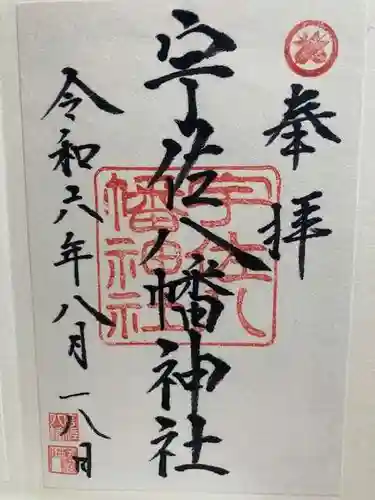 奉拝
宇佐八幡神社
宇佐八幡神社
令和六年八月一八日